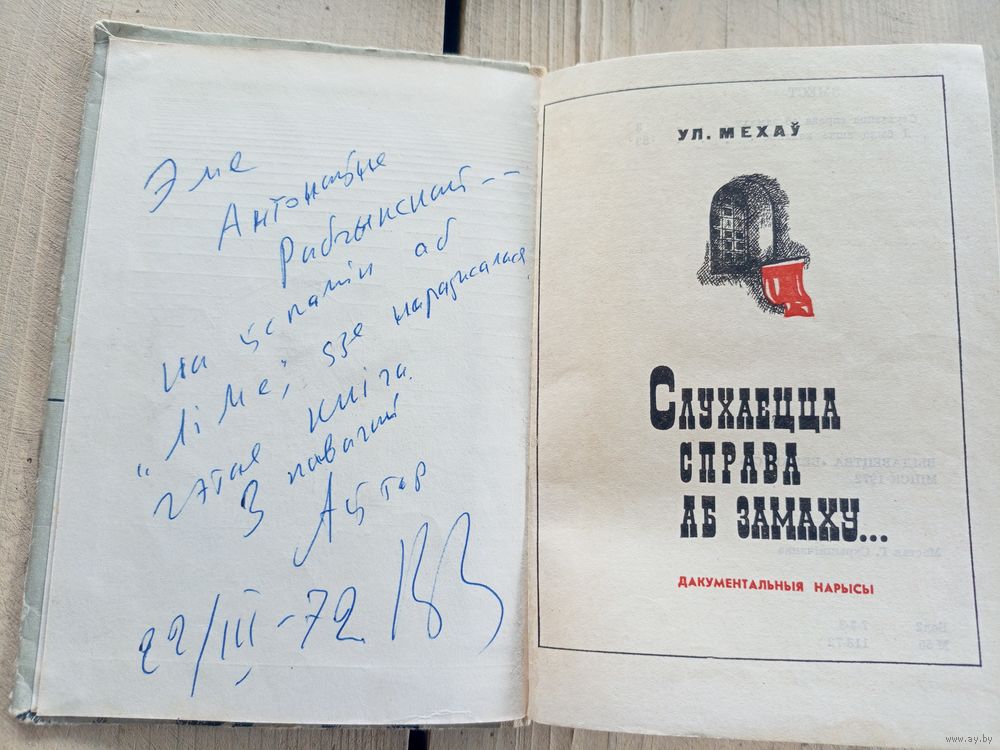 Эме
Антонаўне
на ўспамін аб
"Ліме", дзе нараджалася
гэтая кніга.
З павагай
Аўтар
22/III-72
УЛ. МЕХАЎ
СЛУХАЕЦЦА
СПРАВА
АБ ЗАМАХУ...
ДАКУМЕНТАЛЬНЫЯ НАРЫСЫ
www.ay.by